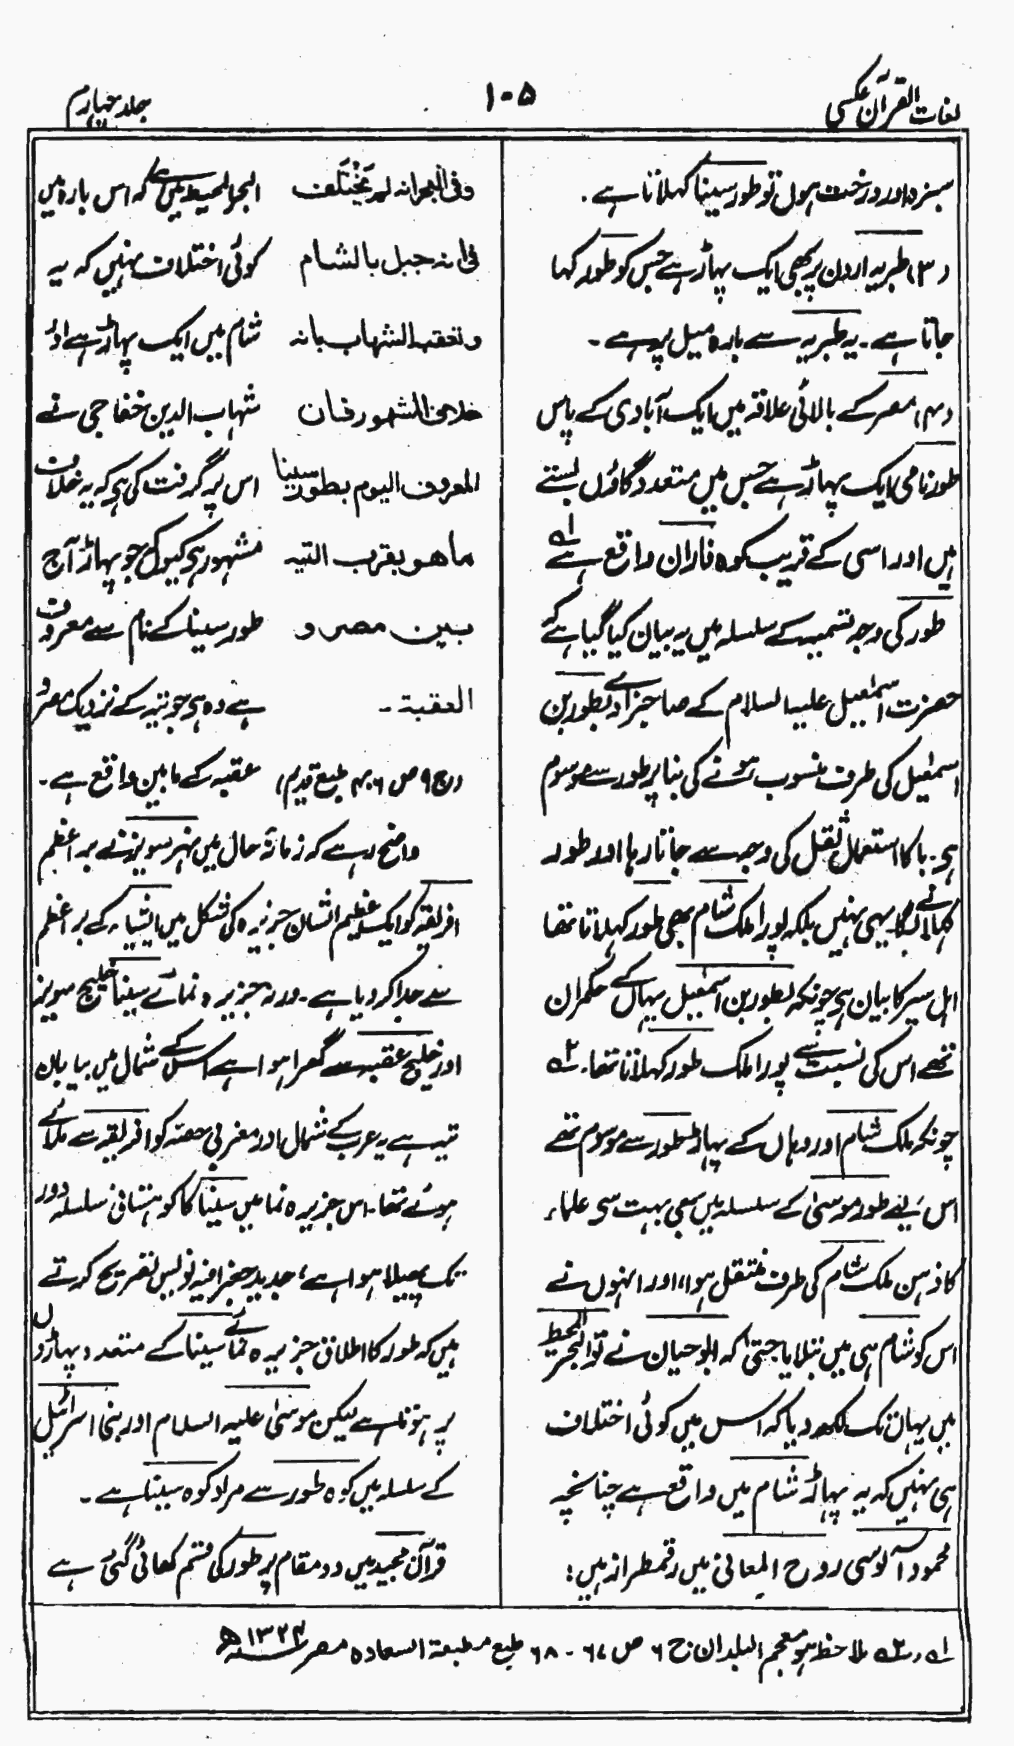 لغات القرآن عکسی
۱۰۵
جلد چہارم
سبزہ اور درخت ہوں تو طور سینا کہلاتا ہے۔
(۳) طبریہ اردن پر بھی ایک پہاڑ ہے جس کو طور کہا
جاتا ہے۔ یہ طبریہ سے بارہ میل پر ہے۔
(۴) مصر کے بالائی علاقہ میں ایک آبادی کے پاس
طور نامی ایک پہاڑ ہے جس میں متعدد گاؤں بستے
ہیں اور اسی کے قریب کوہ فاران واقع ہے لہ
طور کی وجہ تسمیہ کے سلسلہ میں یہ بیان کیا گیا ہے کہ
حضرت اسمٰعیل علیہ السلام کے صاحبزادے بطور بن
اسمٰعیل کی طرف منسوب ہونے کی بنا پر طور سے موسوم
ہے۔ با کا استعمال ثقل کی وجہ سے جاتا رہا اور طور
کہلانے لگا یہی نہیں بلکہ پورا ملک شام بھی طور کہلاتا تھا
اہل سیر کا بیان ہے چونکہ بطور بن اسمٰعیل یہاں کے حکمران
تھے اس کی نسبت سے پورا ملک طور کہلاتا تھا۔ ۲ہ
چونکہ ملک شام اور وہاں کے پہاڑ طور سے موسوم تھے
اس لیے طور موسیٰ کے سلسلہ میں بھی بہت سی علماء
کا ذہن ملک شام کی طرف منتقل ہوا، اور انہوں نے
اس کو شام ہی میں بتلایا حتیٰ کہ ابو حیان نے تو البحر المحیط
میں یہاں تک لکھ دیا کہ اس میں کوئی اختلاف
ہی نہیں کہ یہ پہاڑ شام میں واقع ہے چنانچہ
محمود آلوسی روح المعانی میں رقمطراز ہیں:
وفی البحر انہ لم یختلف البحر المحیط میں ہے کہ اس بارہ میں
فی انہ جبل بالشام کوئی اختلاف نہیں کہ یہ
وتعقب الشہاب بانہ شام میں ایک پہاڑ ہے اور
خلاف المشہور فان شہاب الدین خفاجی نے
المعروف الیوم بطور سینا اس پر گرفت کی ہے کہ یہ خلاف
ما ھو بقرب التیہ مشہور ہے کیونکہ جو پہاڑ آج
بین مصر و طور سینا کے نام سے معروف
العقبۃ۔ ہے وہ ہے جو تیہ کے نزدیک مصر و
(ج ۹ ص ۴۰۶ طبع قدیم) عقبہ کے مابین واقع ہے۔
واضح رہے کہ زمانۂ حال میں نہر سویز نے بر اعظم
افریقہ کو ایک عظیم الشان جزیرہ کی شکل میں ایشیاء کے بر اعظم
سے جدا کر دیا ہے۔ ورنہ جزیرہ نمائے سینا خلیج سویز
اور خلیج عقبہ سے گھرا ہوا ہے اس کے شمال میں بیابان
تیہ ہے یہ عرب کے شمال اور مغربی حصہ کو افریقہ سے ملائے
ہوئے تھا۔ اس جزیرہ نما میں سینا کا کوہستانی سلسلہ دور
تک پھیلا ہوا ہے، جدید جغرافیہ نویس تصریح کرتے
ہیں کہ طور کا اطلاق جزیرہ نمائے سینا کے متعدد پہاڑوں
پر ہوتا ہے لیکن موسیٰ علیہ السلام اور بنی اسرائیل
کے سلسلہ میں کوہ طور سے مراد کوہ سینا ہے۔
قرآن مجید میں دو مقام پر طور کی قسم کھائی گئی ہے
لہ و ۲ہ ملاحظہ ہو معجم البلدان ج ۶ ص ۶۷ - ۶۸ طبع مطبعۃ السعادہ مصر ۱۳۲۴ھ